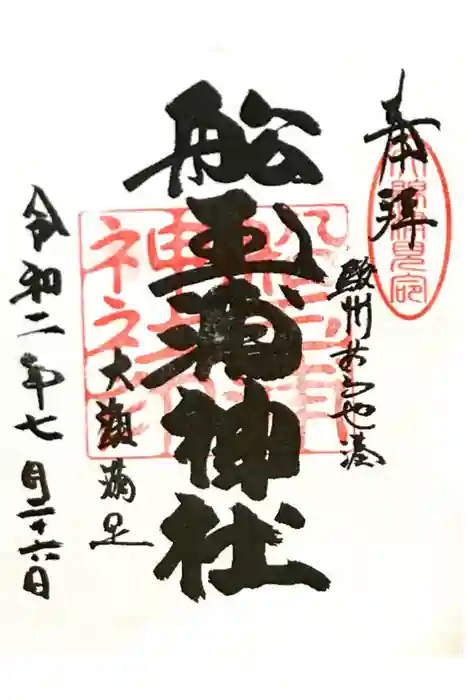 奉拝
駿州おうや湊
船玉浦神社
大瀬満足
令和二年七月二十六日